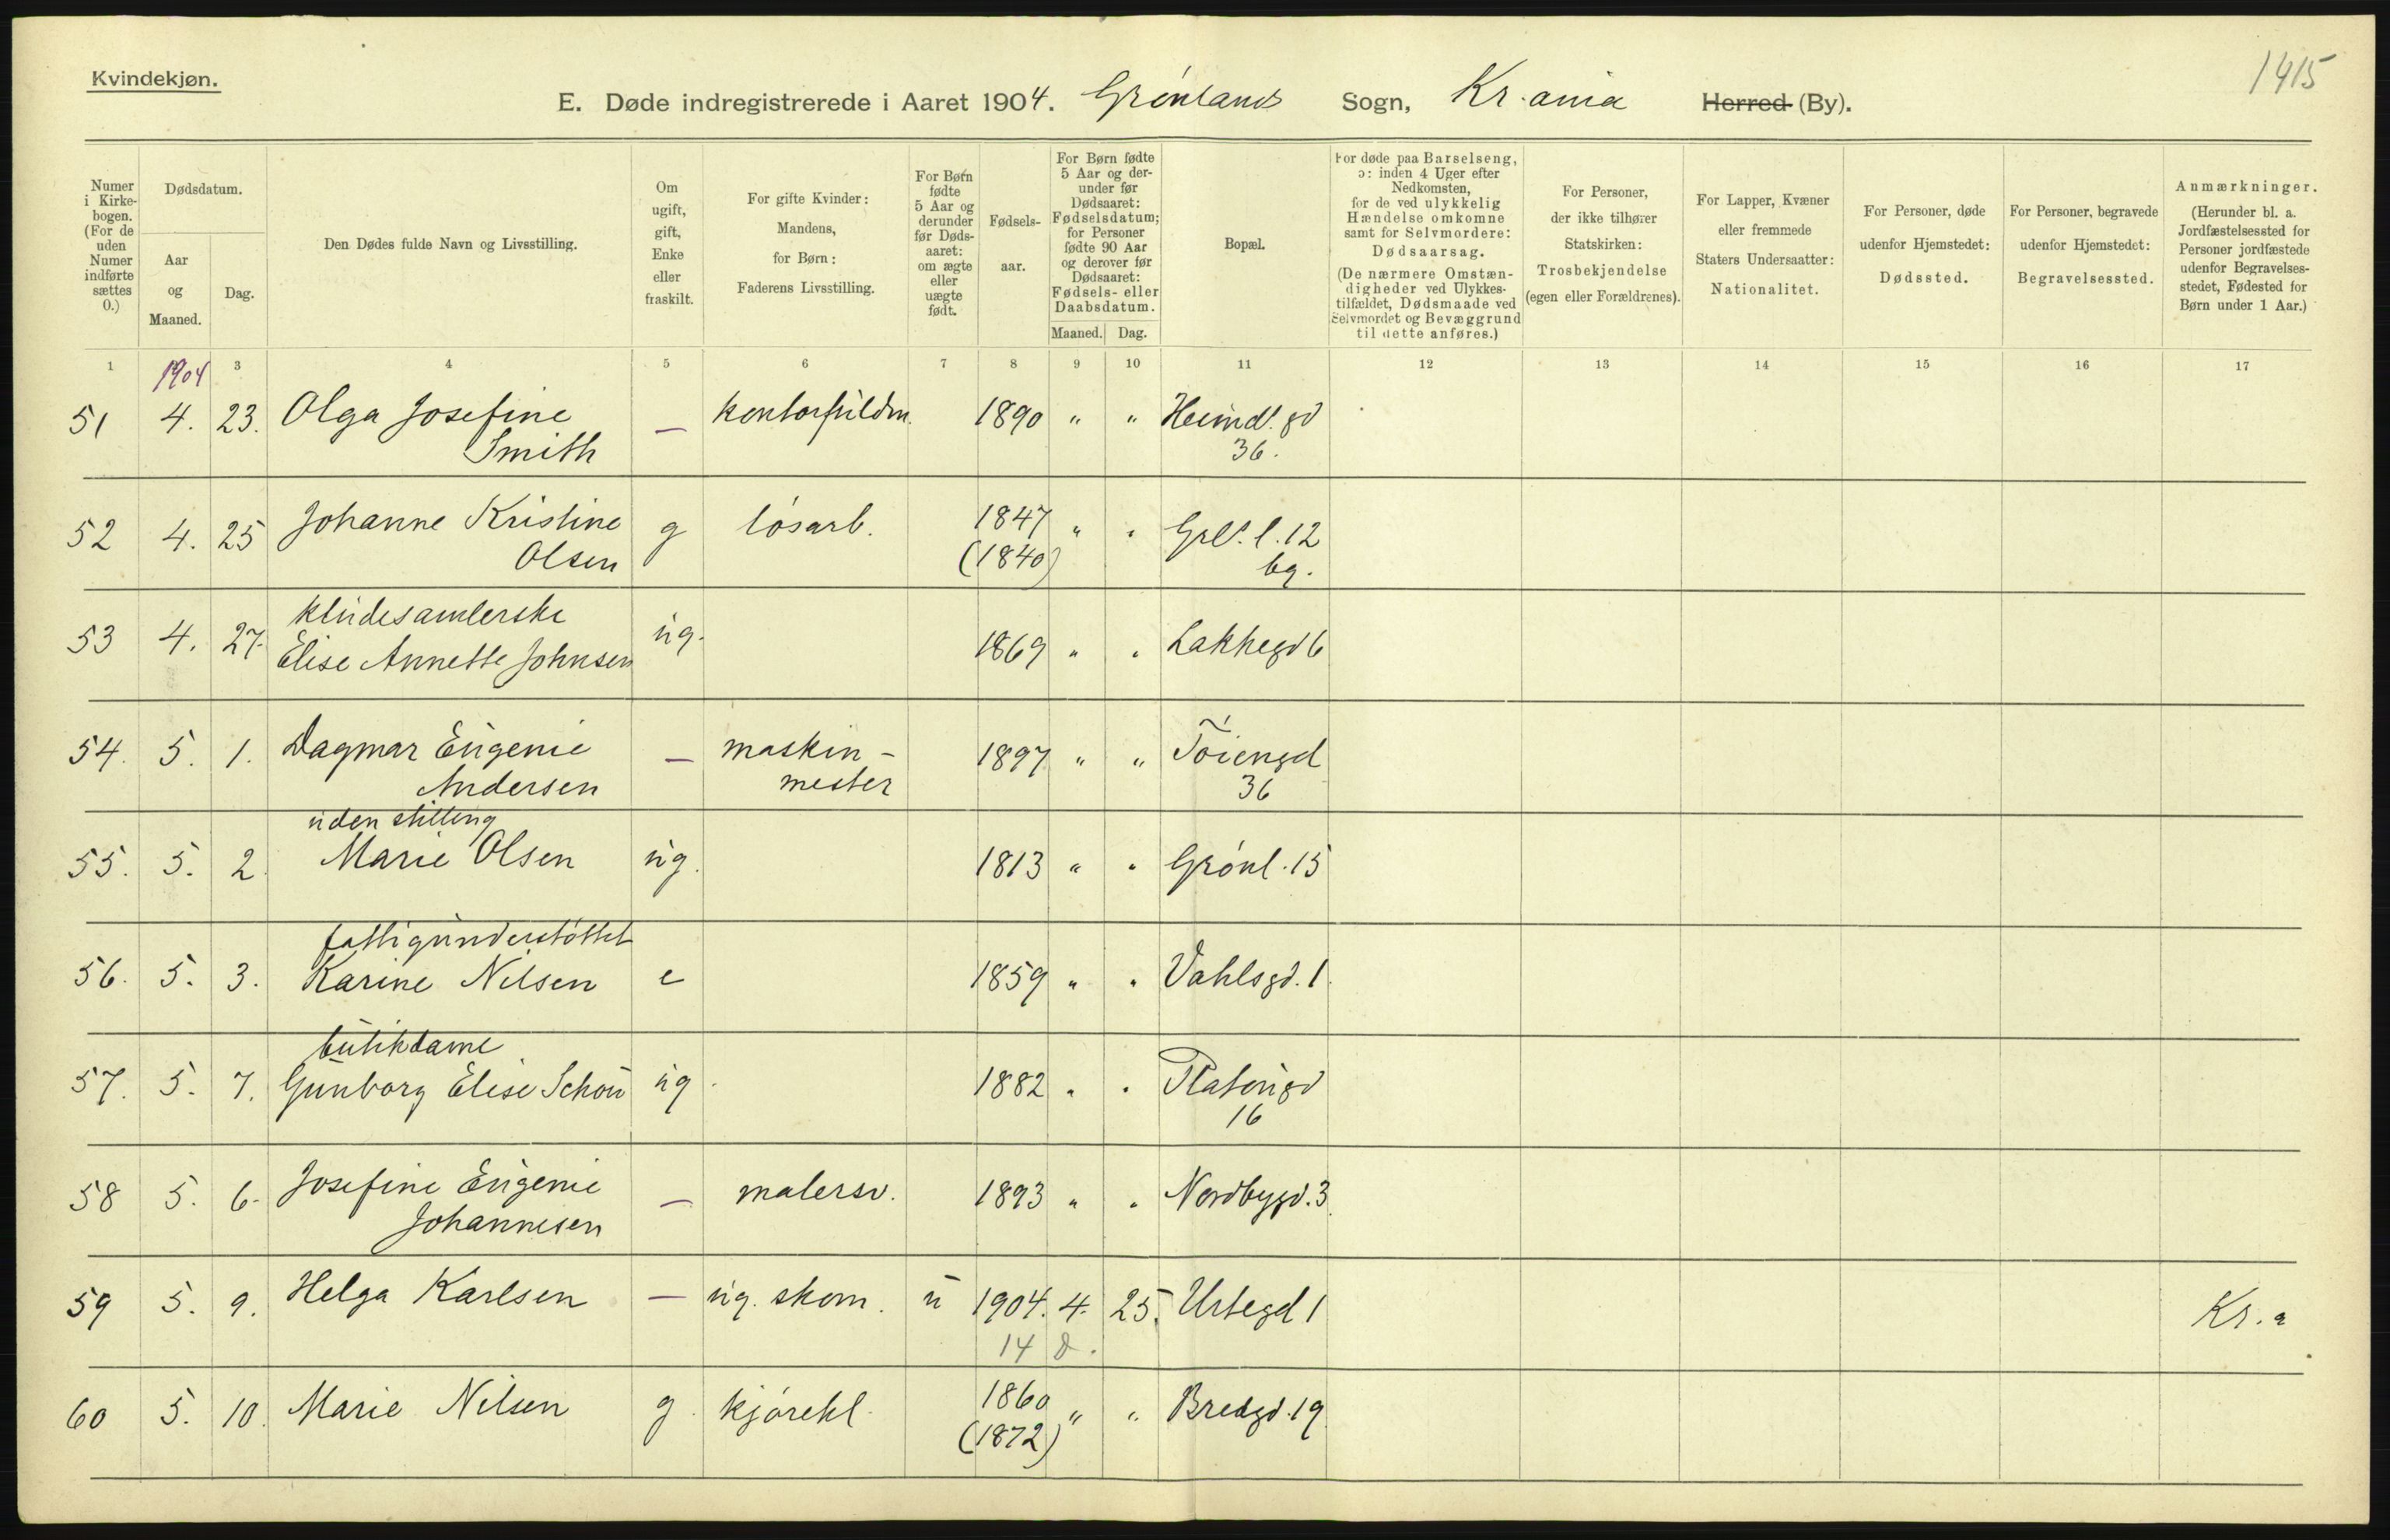 Kvindekjøn.
1415
E. Døde indregistrerede i Aaret 1904. Grønlands Sogn, Kr.ania Herred (By).
Numer i Kirkebogen. (For de uden Numer indførte sættes 0.)
Dødsdatum.
Aar og Maaned.
Dag.
Den Dødes fulde Navn og Livsstilling.
Om ugift, gift, Enke eller fraskilt.
For gifte Kvinder: Mandens, for Børn: Faderens Livsstilling.
For Børn fødte 5 Aar og derunder før Dødsaaret: om ægte eller uægte født.
Fødselsaar.
For Børn fødte 5 Aar og derunder før Dødsaaret: Fødselsdatum; for Personer fødte 90 Aar og derover før Dødsaaret: Fødsels- eller Daabsdatum.
Maaned. Dag.
Bopæl.
For døde paa Barselseng, ɔ: inden 4 Uger efter Nedkomsten, for de ved ulykkelig Hændelse omkomne samt for Selvmordere: Dødsaarsag. (De nærmere Omstændigheder ved Ulykkestilfældet, Dødsmaade ved Selvmordet og Bevæggrund til dette anføres.)
For Personer, der ikke tilhører Statskirken: Trosbekjendelse (egen eller Forældrenes).
For Lapper, Kvæner eller fremmede Staters Undersaatter: Nationalitet.
For Personer, døde udenfor Hjemstedet: Dødssted.
For Personer, begravede udenfor Hjemstedet: Begravelsessted.
Anmærkninger. (Herunder bl. a. Jordfæstelsessted for Personer jordfæstede udenfor Begravelsesstedet, Fødested for Børn under 1 Aar.)
1 3 4 5 6 7 8 9 10 11 12 13 14 15 16 17
1904
51 4. 23. Olga Josefine — kontorfuldm. 1890 " " Heimdl. gd
Smith 36.
52 4. 25 Johanne Kristine g løsarb. 1847 " " Grl. l. 12
Olsen (1840) bg.
kludesamlerske
53 4. 27. Elise Annette Johnsen ug. 1869 " " Lakkegd 6
54. 5. 1. Dagmar Eugenie — maskin- 1897 " " Tøiengd
Andersen mester 36
uden stilling
55. 5. 2. Marie Olsen ug. 1813 " " Grønl. 15
fattigunderstøttet
56. 5. 3. Karine Nilsen e 1859 " " Vahlsgd. 1.
butikdame
57. 5. 7. Gunborg Elise Schou ug. 1882 " " Platougd
16
58 5. 6. Josefine Eugenie — malersv. 1893 " " Nordbygd. 3.
Johannesen
59 5. 9. Helga Karlsen — ug. skom. u 1904. 4. 25. Urtegd 1 Kr.a
14 d.
60 5. 10. Marie Nilsen g. kjørekl. 1860 " " Bredgd. 19
(1872)